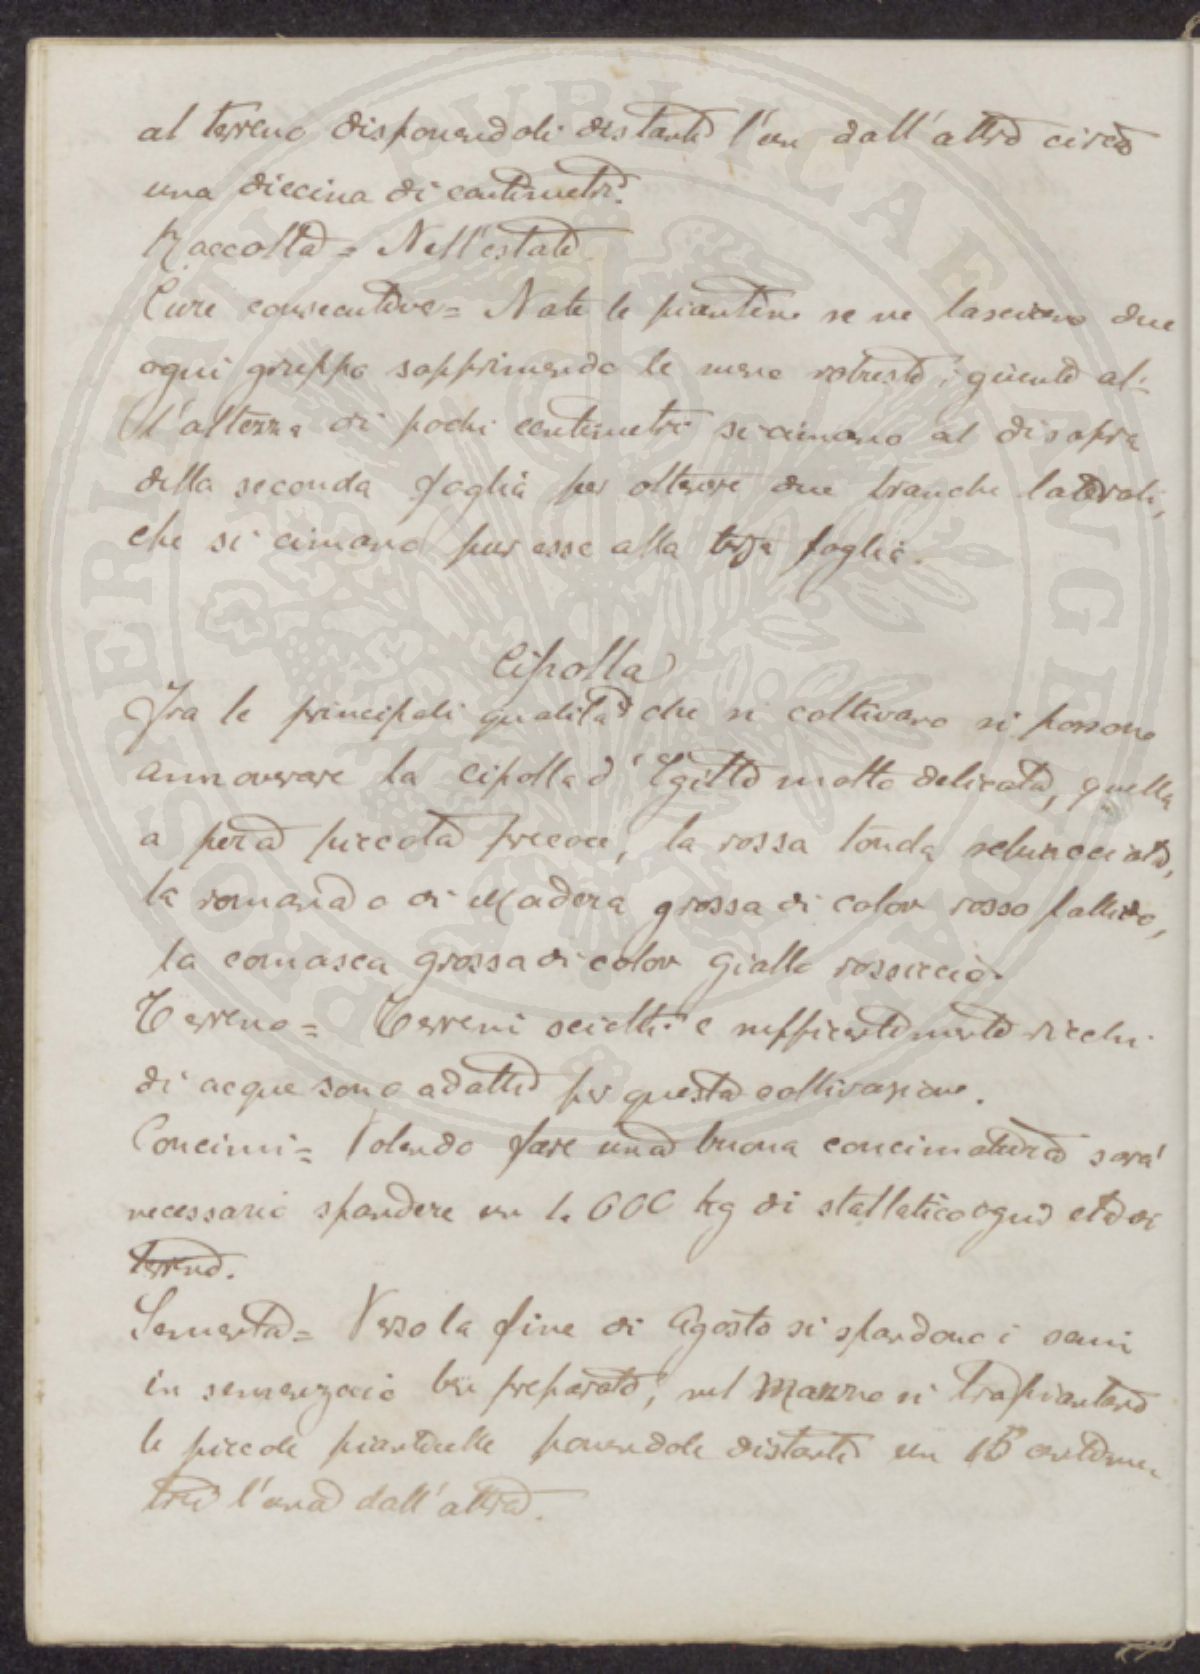 al terreno disponendoli distanti l'un dall'altro circa
una diecina di centimetri.
Raccolta = Nell'estate
Cure consecutive = Nate le piantine se ne lasciano due
ogni gruppo sopprimendo le meno robuste; giunte al-
l'altezza di pochi centimetri si cimano al disopra
della seconda foglia per ottenere due branche laterali,
che si cimano pur esse alla terza foglia.
Cipolla
Fra le principali qualità che si coltivano si possono
annoverare la cipolla d'Egitto molto delicata, quella
a pera piccola precoce, la rossa tonda schiacciata,
la romana o di Madera grossa di color rosso pallido,
la comasca grossa di color giallo rossiccio.
Terreno = Terreni sciolti e sufficientemente ricchi
di acque sono adatti per questa coltivazione.
Concimi = Volendo fare una buona concimatura sarà
necessario spandere un 1.000 kg di stallatico ogni etto di
terreno.
Sementa = Verso la fine di Agosto si spandono i semi
in semenzaio ben preparato; nel Marzo si trapiantano
le piccole pianticelle ponendole distanti un 15 centime-
tri l'una dall'altra.
PROSPERITATI PUBLICAE AUGENDAE